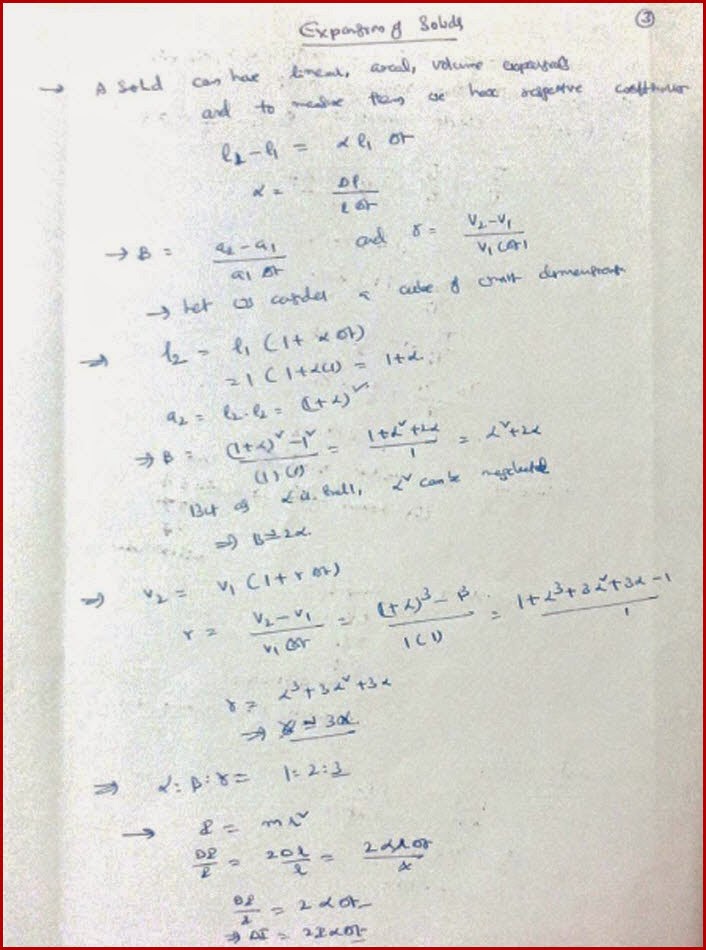 Expansion of Solids
③
→ A Solid can have lineal, areal, volume expansions
and to measure them we have respective coefficients
l₂ - l₁ = α l₁ Δt
α = Δl / l Δt
→ β = a₂ - a₁ / a₁ Δt and γ = V₂ - V₁ / V₁ (Δt)
→ Let us consider a cube of unit dimensions
⇒ l₂ = l₁ (1 + α Δt)
= 1 (1 + α(1)) = 1 + α.
a₂ = l₂ . l₂ = (1 + α)²
⇒ β = (1 + α)² - 1² / (1) (1) = 1 + α² + 2α / 1 = α² + 2α
But as α is small, α² can be neglected
⇒ β ≅ 2α.
⇒ V₂ = V₁ (1 + γ Δt)
γ = V₂ - V₁ / V₁ Δt = (1 + α)³ - 1³ / 1 (1) = 1 + α³ + 3α² + 3α - 1 / 1
γ = α³ + 3α² + 3α
⇒ γ ≅ 3α.
⇒ α : β : γ = 1 : 2 : 3
→ I = m r²
ΔI / I = 2Δl / l = 2 α l Δt / l
ΔI / I = 2 α Δt
⇒ ΔI = 2 I α Δt